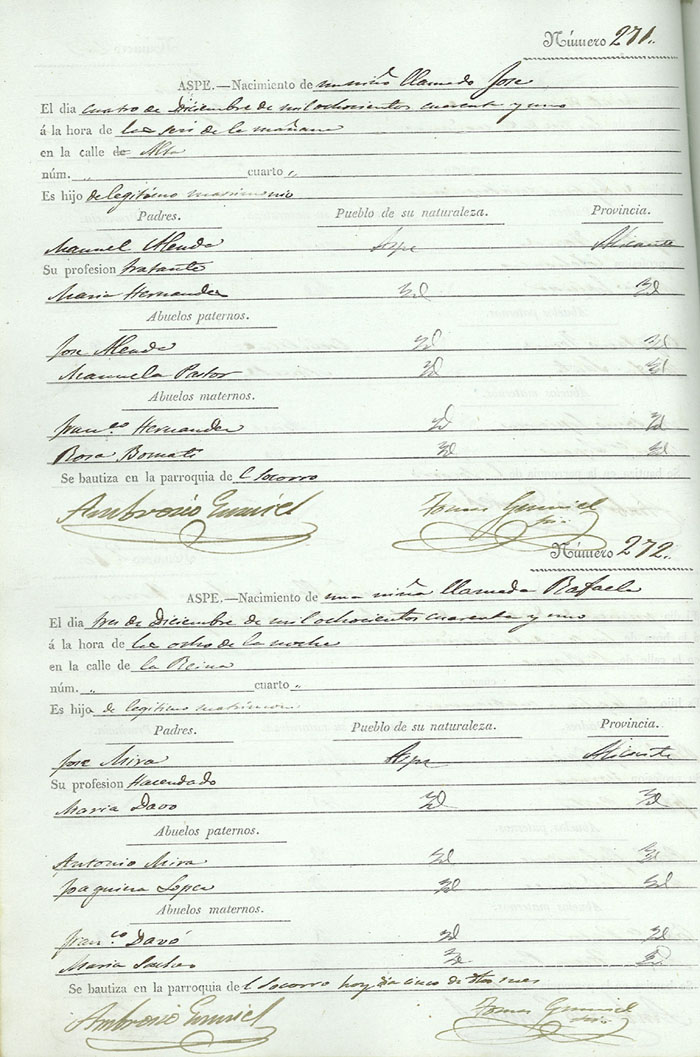 Número 271.
ASPE.—Nacimiento de un niño llamado Jose
El dia cuatro de Diciembre de mil ochocientos cuarenta y uno
á la hora de las seis de la mañana
en la calle de Alta
núm. „ cuarto „
Es hijo de legitimo matrimonio
Padres. Pueblo de su naturaleza. Provincia.
Manuel Alenda Aspe Alicante
Su profesion tratante
Maria Hernandez Yd Yd
Abuelos paternos.
Jose Alenda Yd Yd
Manuela Pastor Yd Yd
Abuelos maternos.
Fran.co Hernandez Yd Yd
Rosa Bomati Yd Yd
Se bautiza en la parroquia de l Socorro
Ambrosio Gumiel Tomas Gumiel
Número 272.
ASPE.—Nacimiento de una niña llamada Rafaela
El dia tres de Diciembre de mil ochocientos cuarenta y uno
á la hora de las ocho de la noche
en la calle de la Reina
núm. „ cuarto „
Es hija de legitimo matrimonio
Padres. Pueblo de su naturaleza. Provincia.
Jose Mira Aspe Alicante
Su profesion Hacendado
Maria Davó Yd Yd
Abuelos paternos.
Antonio Mira Yd Yd
Joaquina Lopez Yd Yd
Abuelos maternos.
Fran.co Davó Yd Yd
Maria Yd Yd
Se bautiza en la parroquia de l Socorro hoy dia cinco de dho mes
Ambrosio Gumiel Tomas Gumiel